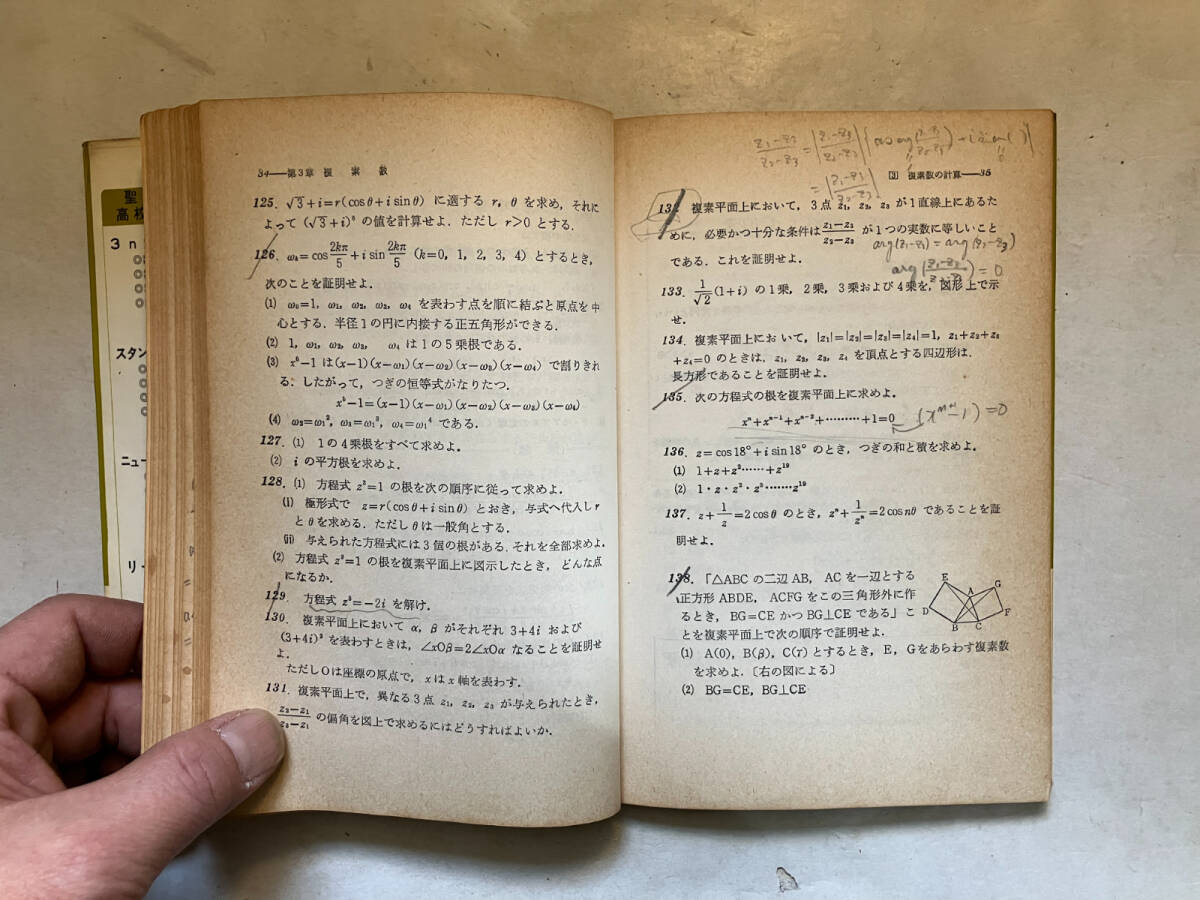 聖
高校
3 n
スタン
ニュー
リー
34——第3章 複 素 数
125. √3+i=r(cosθ+i sinθ) に適する r, θ を求め, それに
よって (√3+i)⁶ の値を計算せよ. ただし r>0 とする.
126. ωₖ=cos 2kπ/5 + i sin 2kπ/5 (k=0, 1, 2, 3, 4) とするとき,
次のことを証明せよ.
(1) ω₀=1, ω₁, ω₂, ω₃, ω₄ を表わす点を順に結ぶと原点を中
心とする. 半径1の円に内接する正五角形ができる.
(2) 1, ω₁, ω₂, ω₃, ω₄ は1の5乗根である.
(3) x⁵−1 は(x−1)(x−ω₁)(x−ω₂)(x−ω₃)(x−ω₄) で割りきれ
る. したがって, つぎの恒等式がなりたつ.
x⁵−1=(x−1)(x−ω₁)(x−ω₂)(x−ω₃)(x−ω₄)
(4) ω₂=ω₁², ω₃=ω₁³, ω₄=ω₁⁴ である.
127. (1) 1の4乗根をすべて求めよ.
(2) i の平方根を求めよ.
128. (1) 方程式 z³=1 の根を次の順序に従って求めよ.
(i) 極形式で z=r(cosθ+i sinθ) とおき, 与式へ代入し r
と θ を求める. ただし θ は一般角とする.
(ii) 与えられた方程式には3個の根がある. それを全部求めよ.
(2) 方程式 z³=1 の根を複素平面上に図示したとき, どんな点
になるか.
129. 方程式 z⁵=−2i を解け.
130. 複素平面上において α, β がそれぞれ 3+4i および
(3+4i)² を表わすときは, ∠xOβ=2∠xOα なることを証明せ
よ.
ただしOは座標の原点で, x は x 軸を表わす.
131. 複素平面上で, 異なる3点 z₁, z₂, z₃ が与えられたとき,
z₂−z₁/z₃−z₁ の偏角を図上で求めるにはどうすればよいか.
= |z₁−z₃/z₂−z₃|
[3] 複素数の計算——35
132. 複素平面上において, 3点 z₁, z₂, z₃ が1直線上にあるた
めに, 必要かつ十分な条件は z₁−z₃/z₂−z₃ が1つの実数に等しいこと
arg(z₁−z₃) = arg(z₂−z₃)
である. これを証明せよ.
133. 1/√2 (1+i) の1乗, 2乗, 3乗および4乗を, 図形上で示
せ.
134. 複素平面上において, |z₁|=|z₂|=|z₃|=|z₄|=1, z₁+z₂+z₃
+z₄=0 のときは, z₁, z₂, z₃, z₄ を頂点とする四辺形は.
長方形であることを証明せよ.
135. 次の方程式の根を複素平面上に求めよ.
xⁿ+xⁿ⁻¹+xⁿ⁻²+………+1=0 (xⁿ⁺¹−1)=0
136. z=cos18°+i sin18° のとき, つぎの和と積を求めよ.
(1) 1+z+z²……+z¹⁹
(2) 1・z・z²・z³……z¹⁹
137. z+1/z=2cosθ のとき, zⁿ+1/zⁿ=2cos nθ であることを証
明せよ.
138. 「△ABC の二辺 AB, AC を一辺とする
正方形 ABDE, ACFG をこの三角形外に作
るとき, BG=CE かつ BG⊥CE である」こ
とを複素平面上で次の順序で証明せよ.
(1) A(0), B(β), C(γ) とするとき, E, Gをあらわす複素数
を求めよ. 〔右の図による〕
(2) BG=CE, BG⊥CE
E
G
A
D
F
B
C